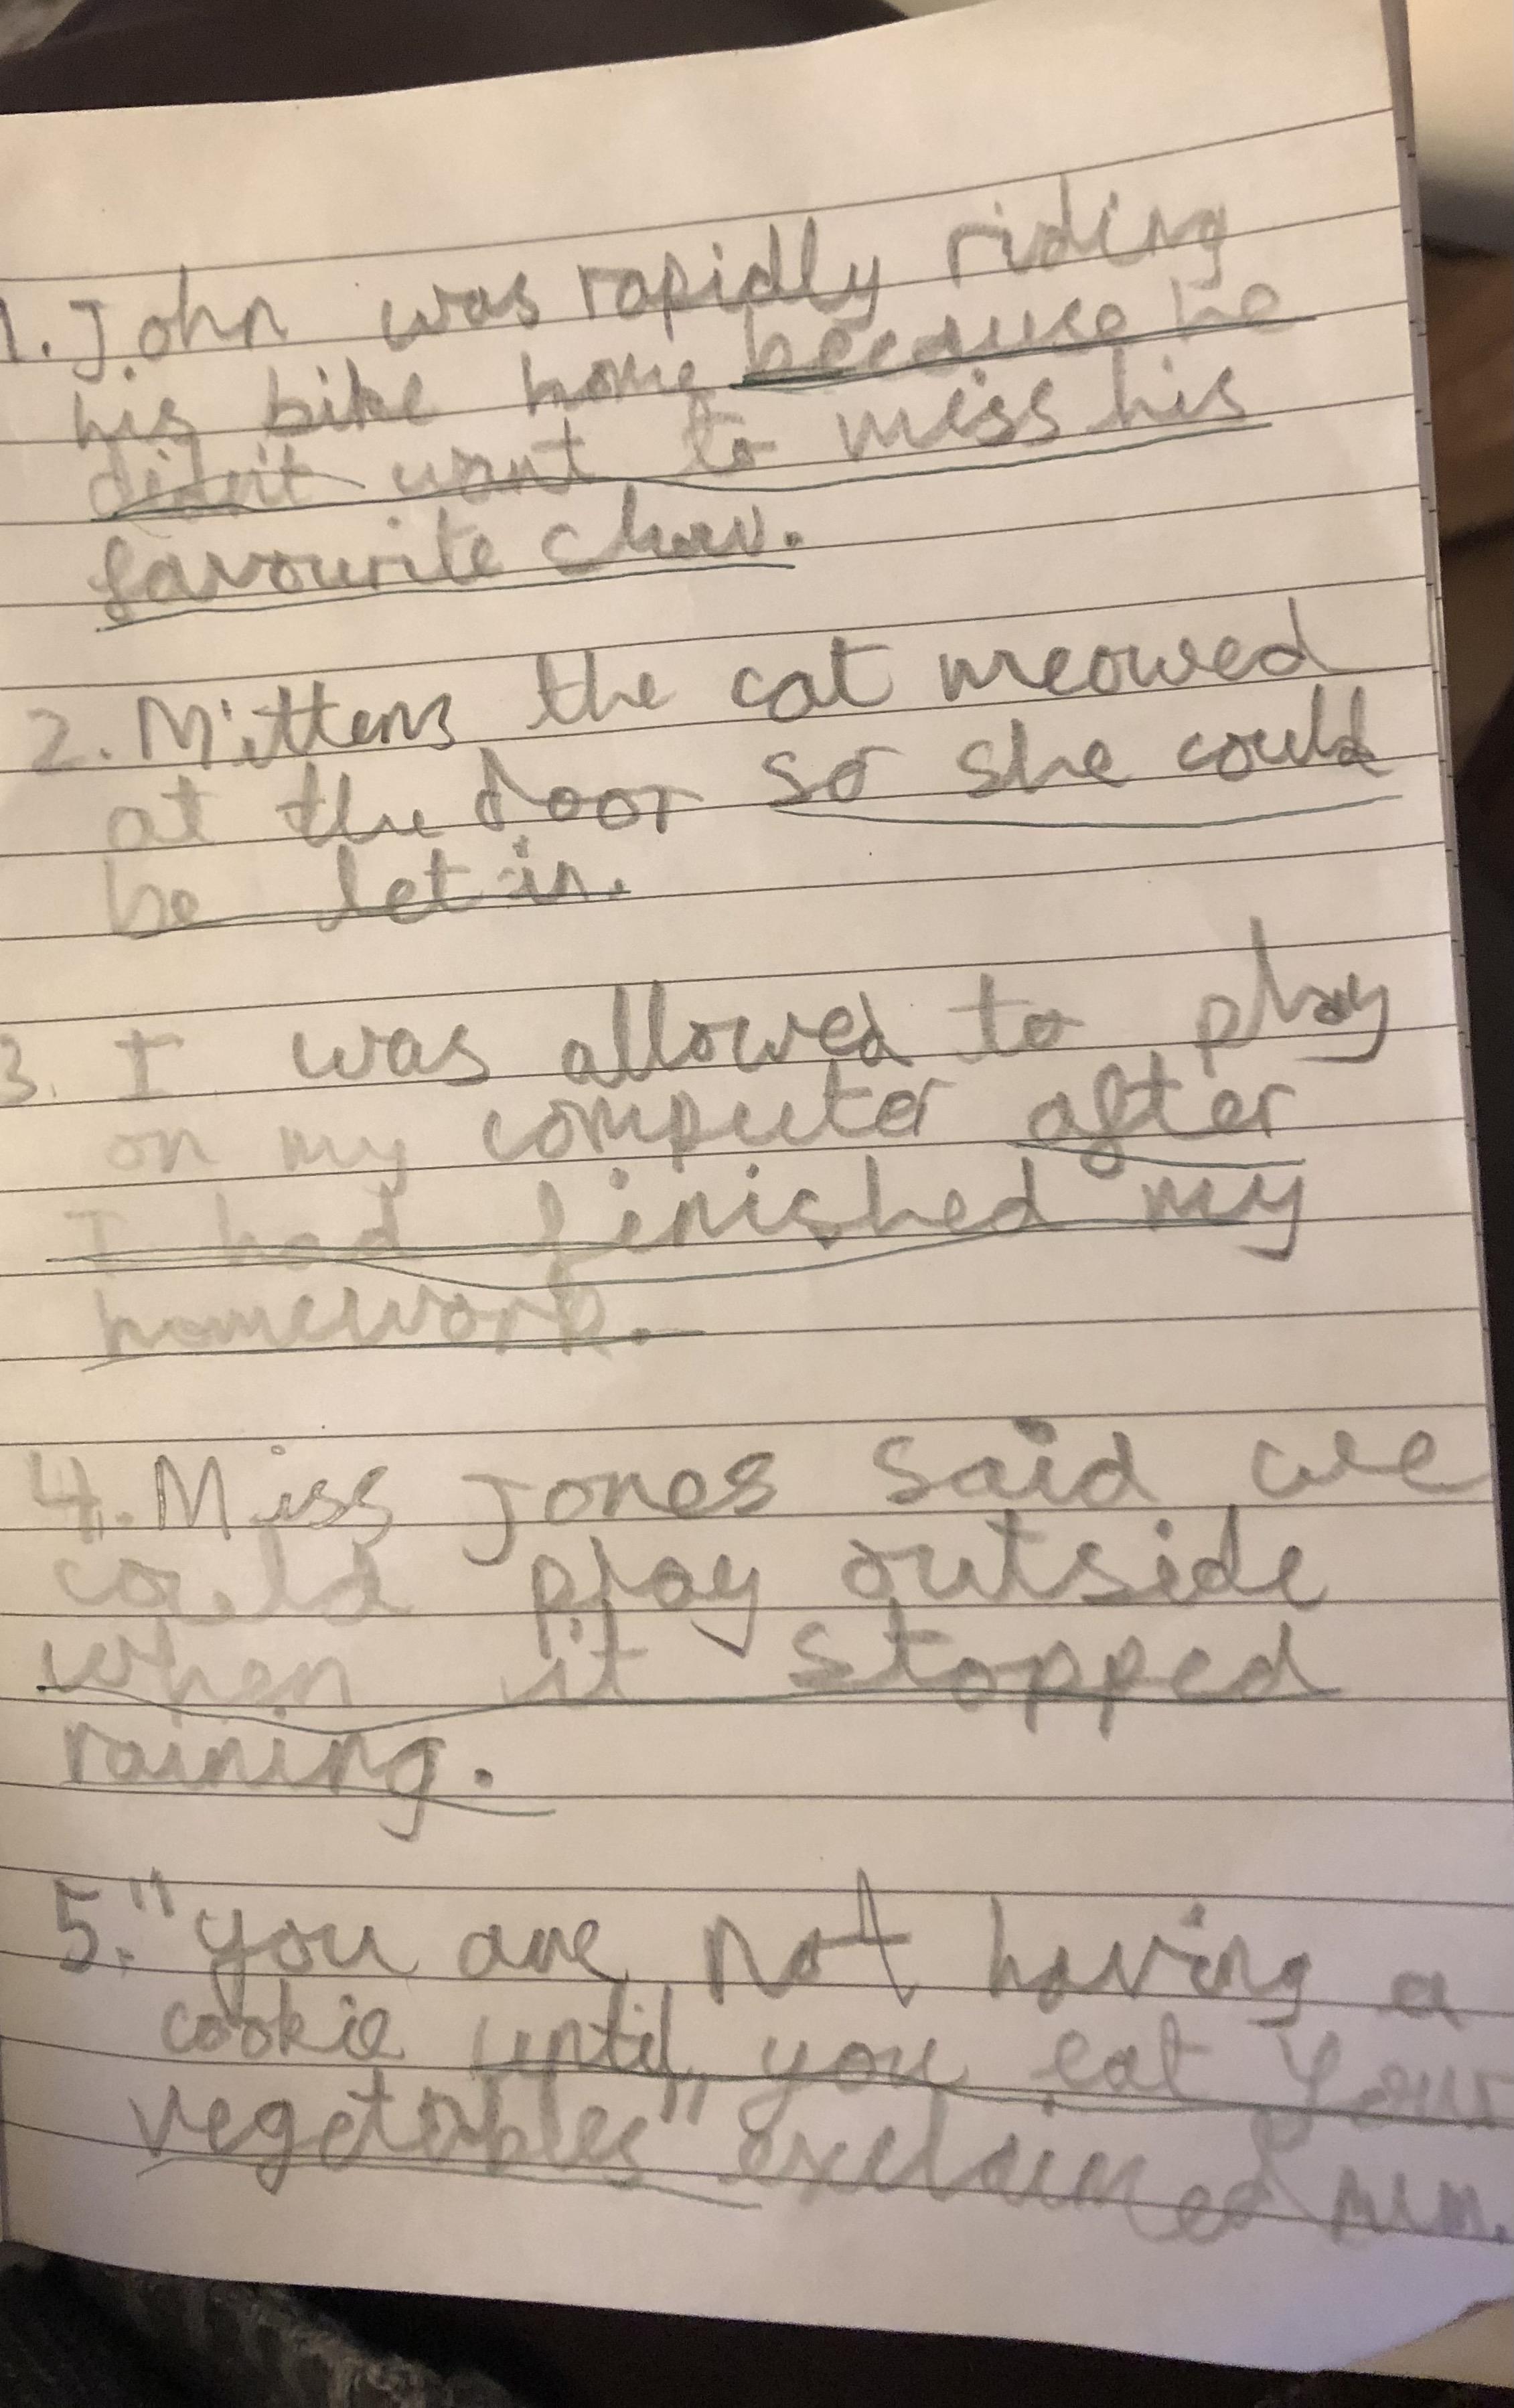 1. John was rapidly riding
his bike home because he
didn't want to miss his
favourite
2. Mittens the cat meowed
at the door so she could
be let in.
3. I was allowed to play
on my computer after
I had finished my
homework.
4. Miss Jones said we
could play outside
when it stopped
raining.
5. "you are not having a
cookie until you eat your
vegetables" exclaimed mum.